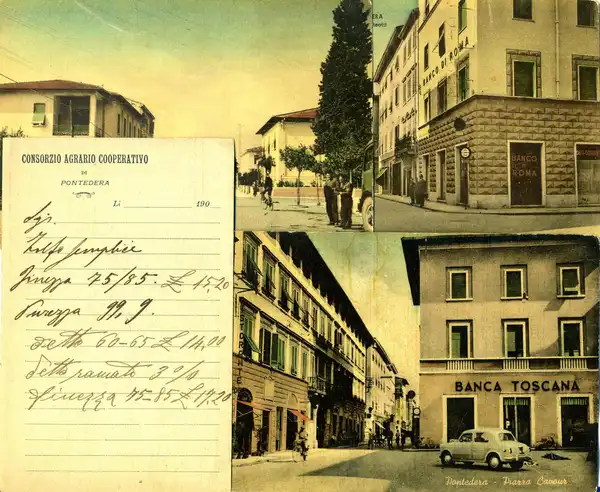 CONSORZIO AGRARIO COOPERATIVO
DI
PONTEDERA
Li 190
Sig.
Zolfo semplice
Finezza 75/85 £ 15,20
Purezza 99,9
detto 60-65 £ 14,00
detto ramato 3%
finezza 75-85 £ 17,20
BANCO DI ROMA
BANCO
DI
ROMA
BANCA TOSCANA
Pontedera - Piazza Cavour